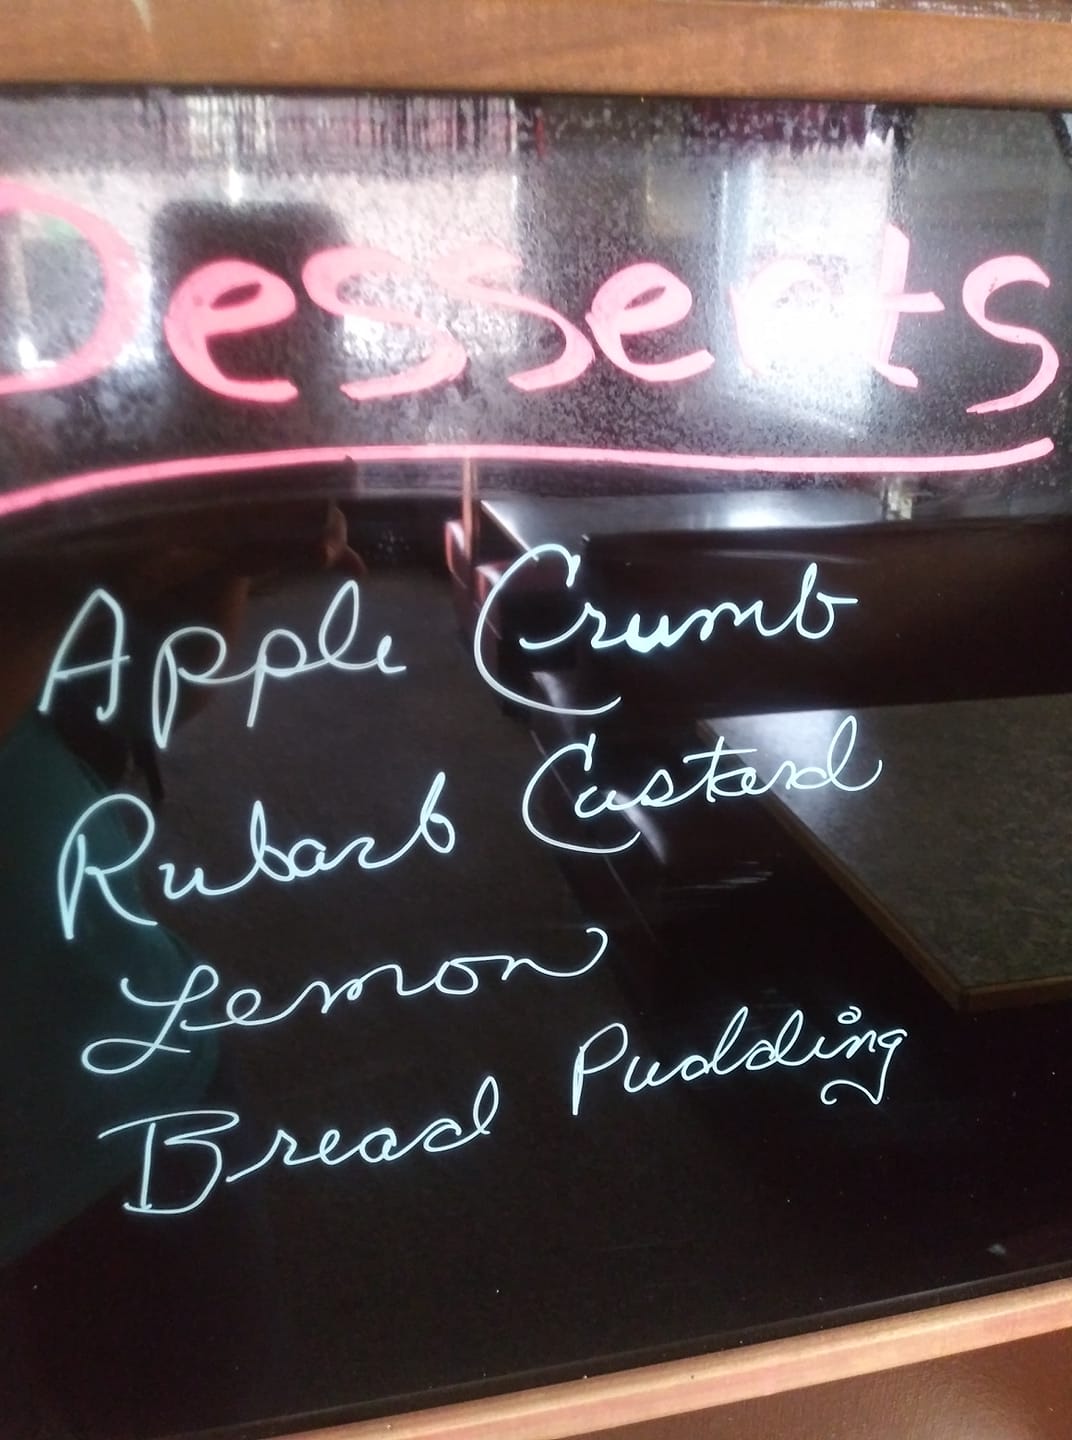 Desserts
Apple Crumb
Rubarb Custard
Lemon
Bread Pudding